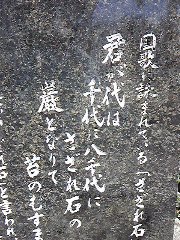 国歌に詠まれている「さざれ石
君が代は
千代に八千代に
さざれ石の
巌となりて
苔のむすま
と言われ